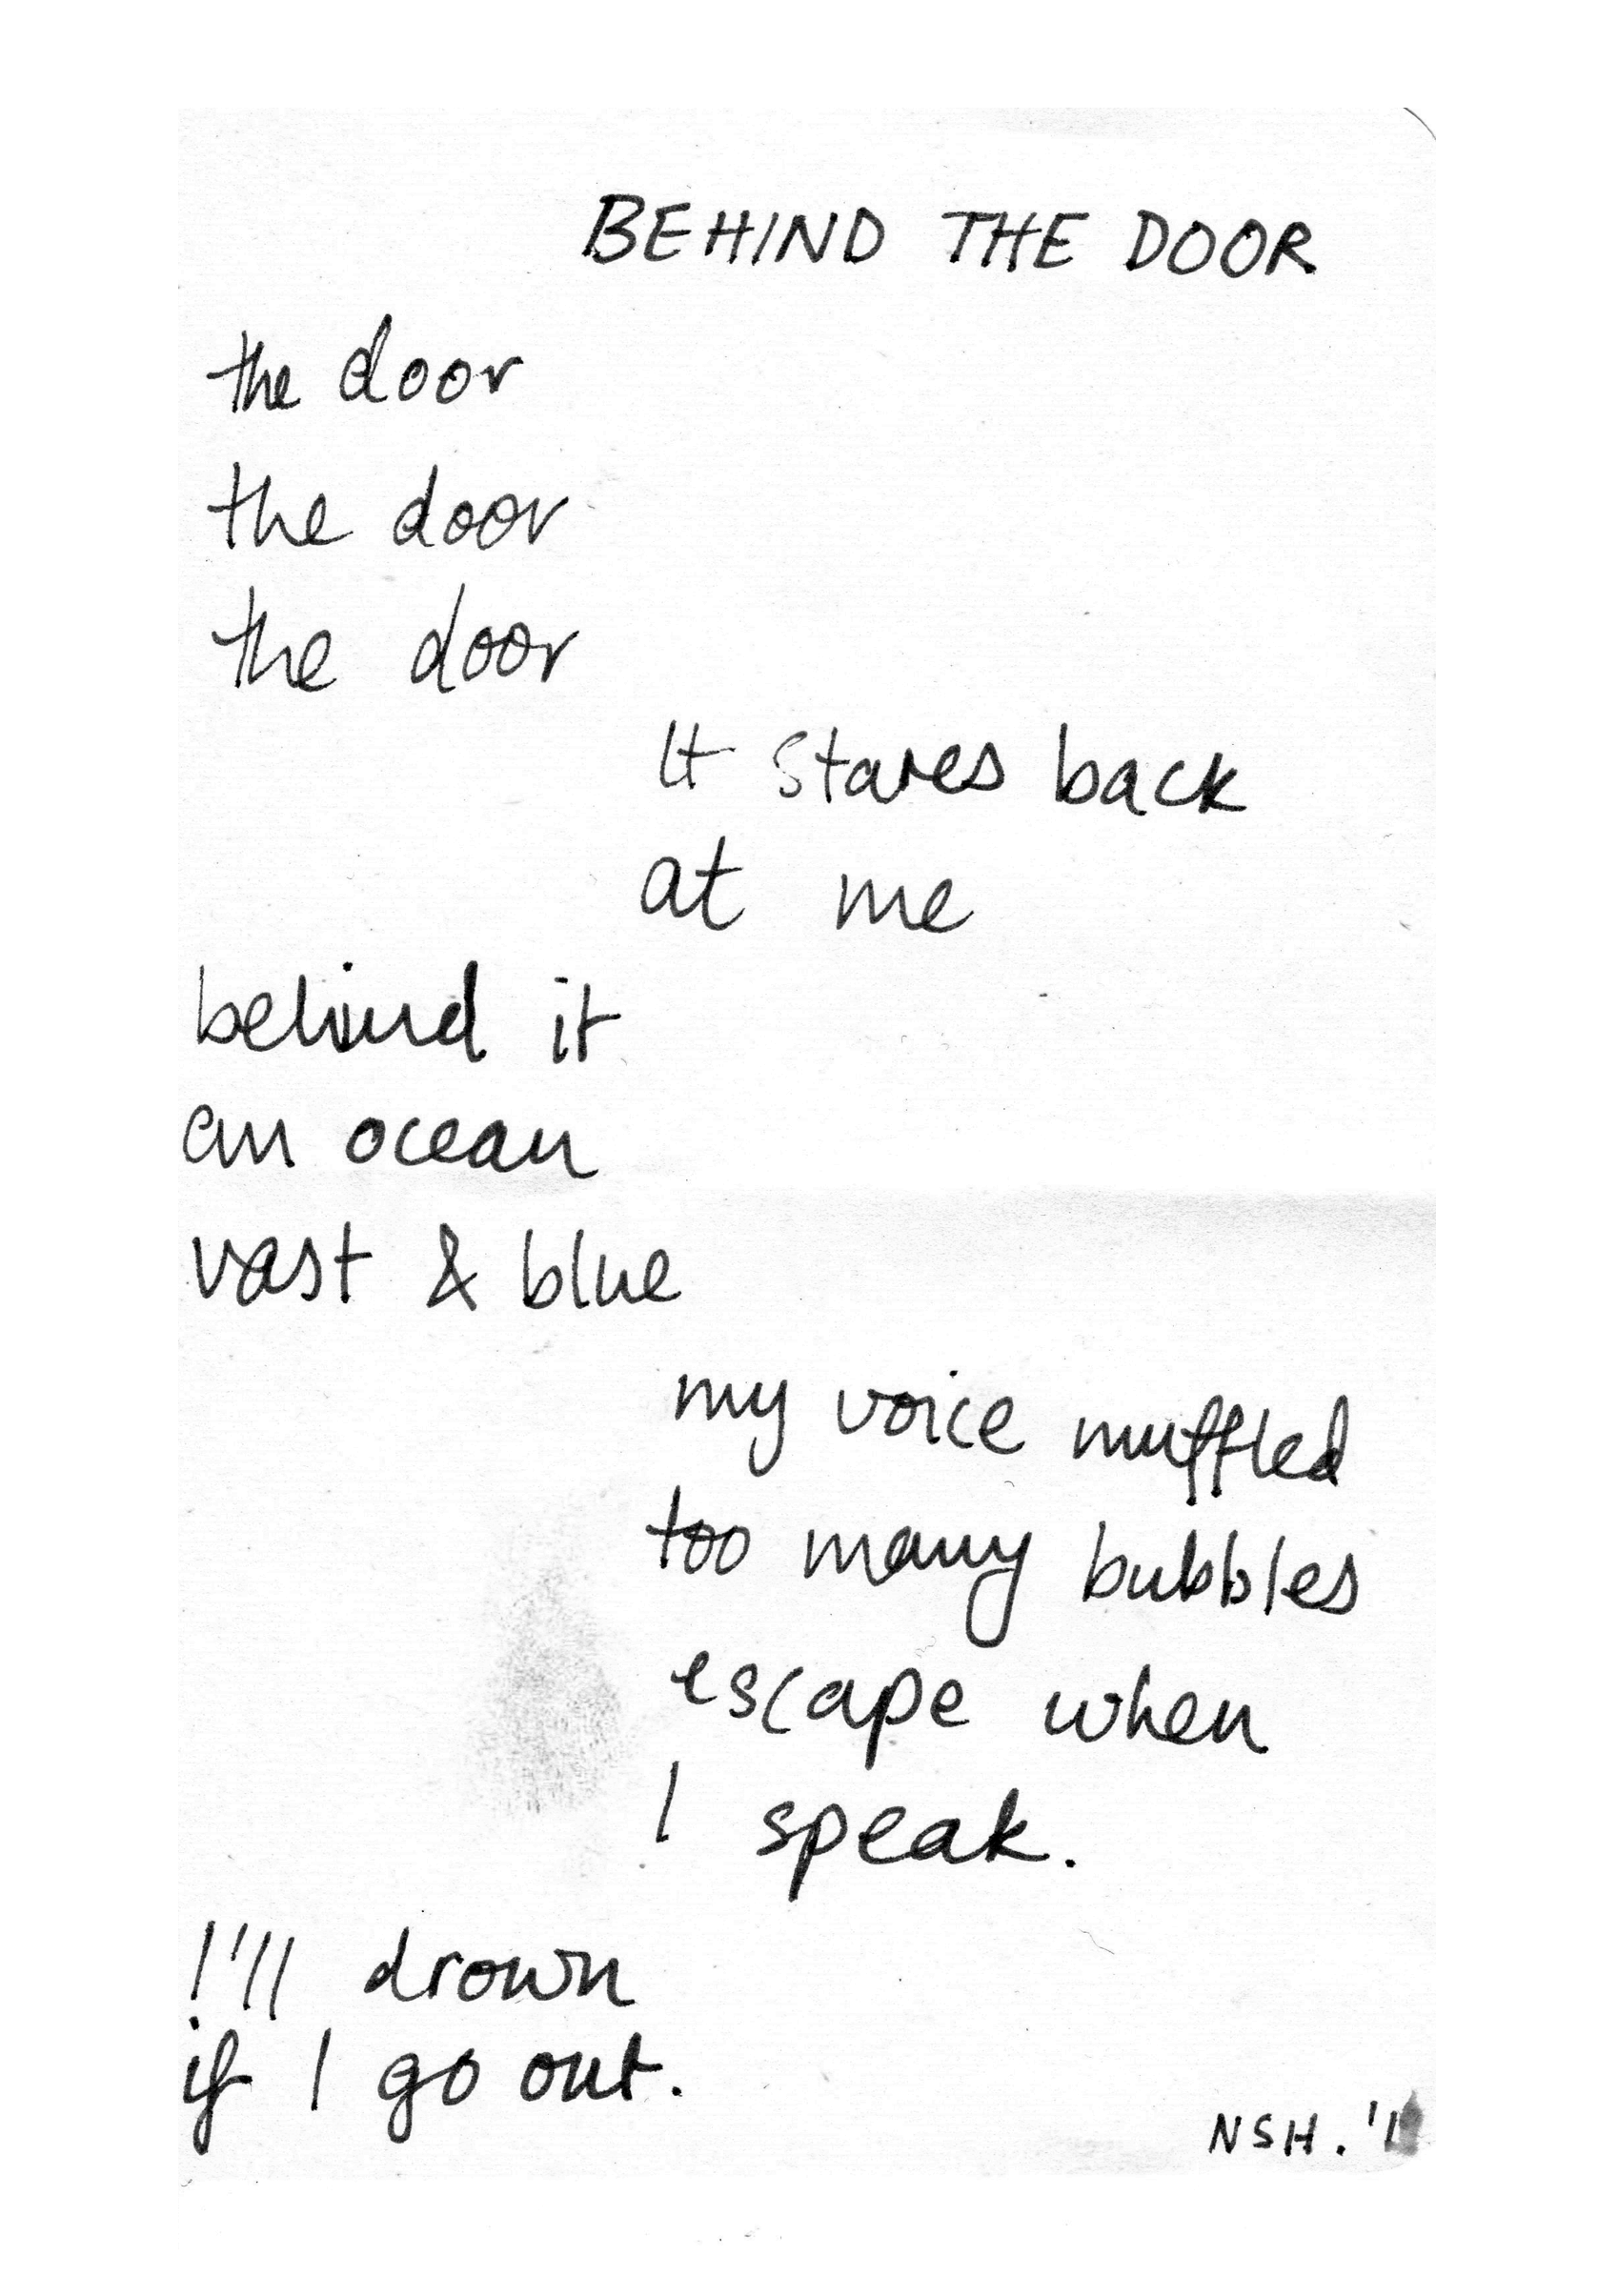 BEHIND THE DOOR
the door
the door
the door
It stares back
at me
behind it
an ocean
vast & blue
my voice muffled
too many bubbles
escape when
I speak.
I'll drown
if I go out.
NSH.